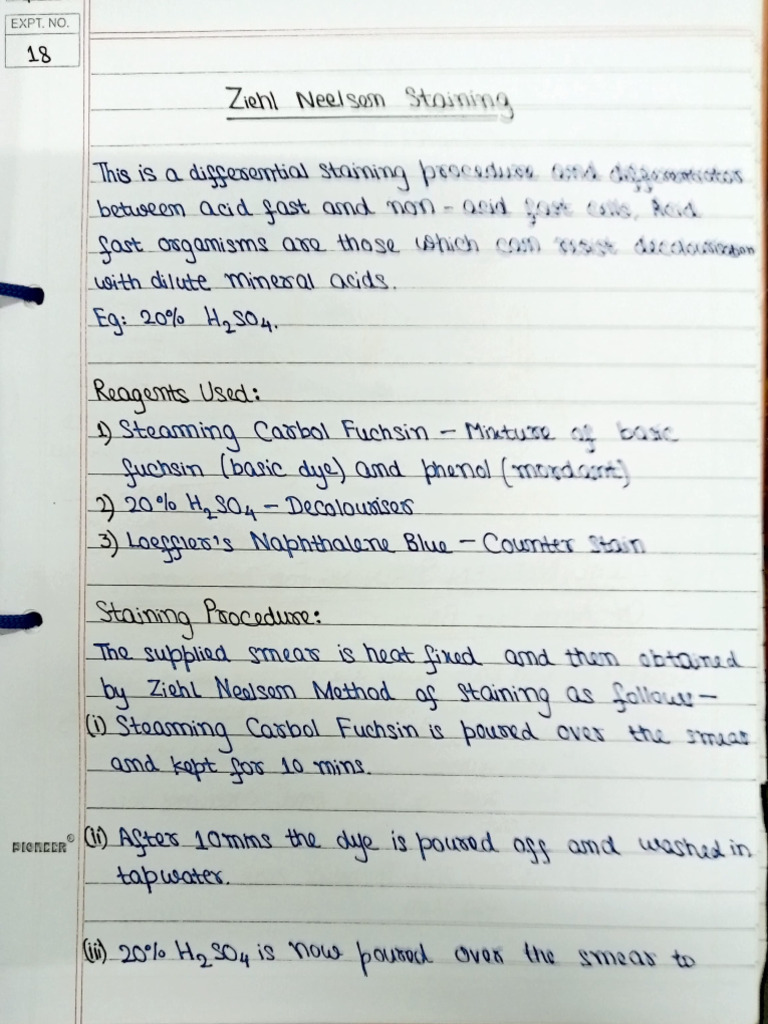 EXPT. NO.
18
Ziehl Neelsen Staining
This is a differential staining procedure and differentiates
between acid fast and non - acid fast cells. Acid
fast organisms are those which can resist decolourisation
with dilute mineral acids.
Eg: 20% H₂SO₄.
Reagents Used:
1) Steaming Carbol Fuchsin – Mixture of basic
fuchsin (basic dye) and phenol (mordant)
2) 20% H₂SO₄ – Decolouriser
3) Loeffler's Naphthalene Blue – Counter stain
Staining Procedure:
The supplied smear is heat fixed and then obtained
by Ziehl Neelsen Method of Staining as follows –
(i) Steaming Carbol Fuchsin is poured over the smear
and kept for 10 mins.
(ii) After 10mins the dye is poured off and washed in
tapwater.
PIONEER
(iii) 20% H₂SO₄ is now poured over the smear to